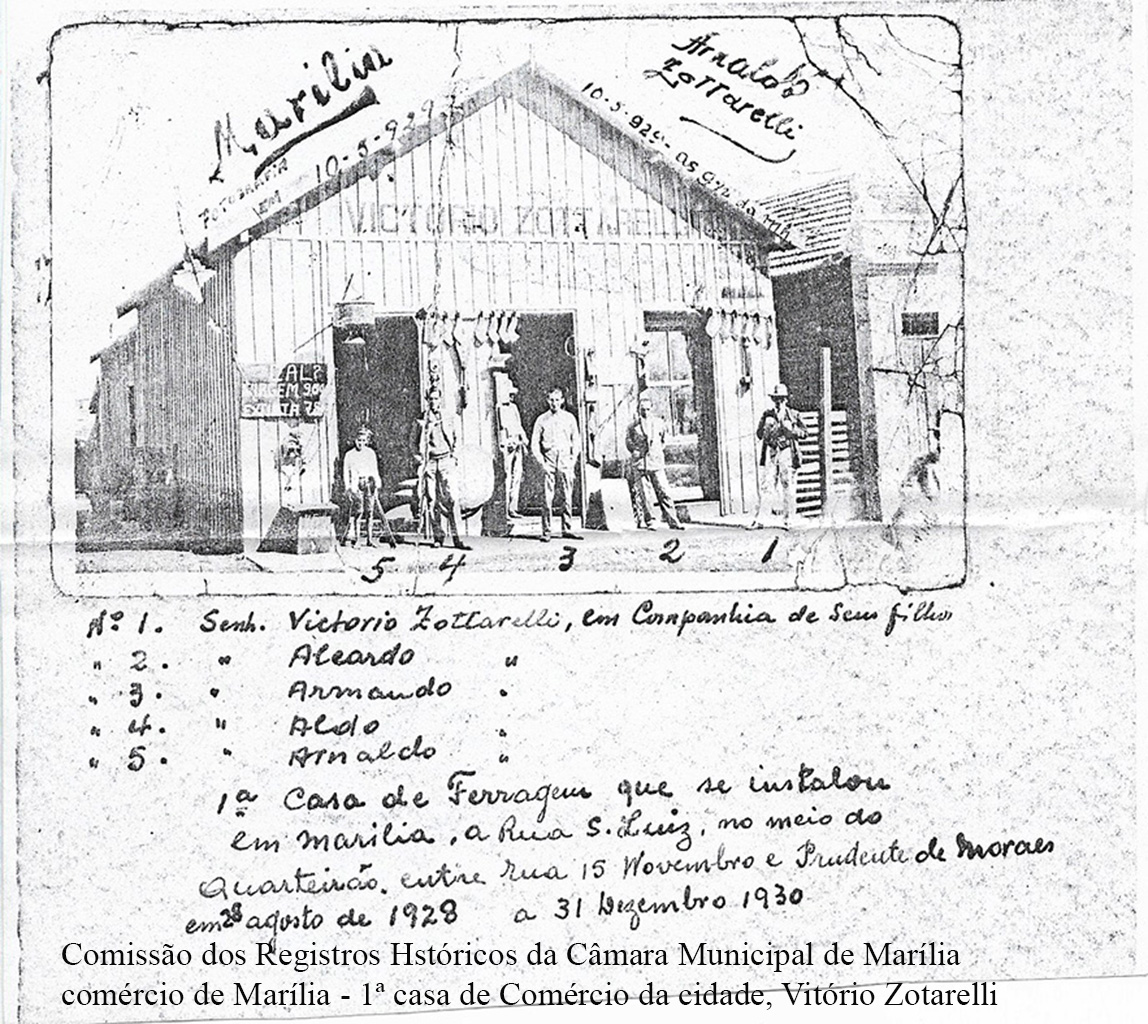 Marilia
Arnaldo
Zottarelli
Fotografia
EM 10-5-929
10-5-929 - as
VICTORIO ZOTTARELLI
5 4 3 2 1
Nº 1. Senh. Victorio Zottarelli, em Companhia de seus filhos
" 2. " Alcardo "
" 3. " Armando "
" 4. " Aldo "
" 5. " Arnaldo "
1ª Casa de Ferragem que se instalou
em Marilia, a Rua S. Luiz, no meio do
Quarteirão, entre rua 15 Novembro e Prudente de Moraes
em 28 agosto de 1928 a 31 Dezembro 1930
Comissão dos Registros Hstóricos da Câmara Municipal de Marília
comércio de Marília - 1ª casa de Comércio da cidade, Vitório Zotarelli